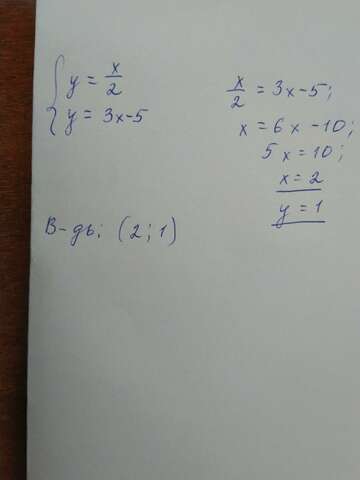 { y = x/2
y = 3x-5
x/2 = 3x-5;
x = 6x-10;
5x = 10;
x = 2
y = 1
В-дь: (2; 1)